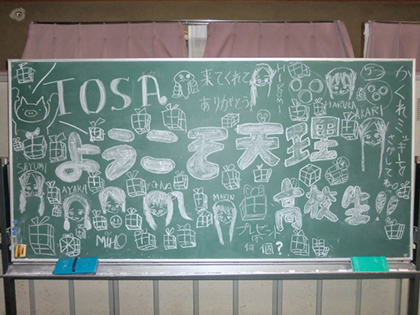 TOSA
来てくれて
ありがとう
ようこそ天理
高校生!!
HARUKA
AKARI
かくれミッキーを
さがしてね
SATUKI
AYAKA
MIHO
プレゼントは
何個?